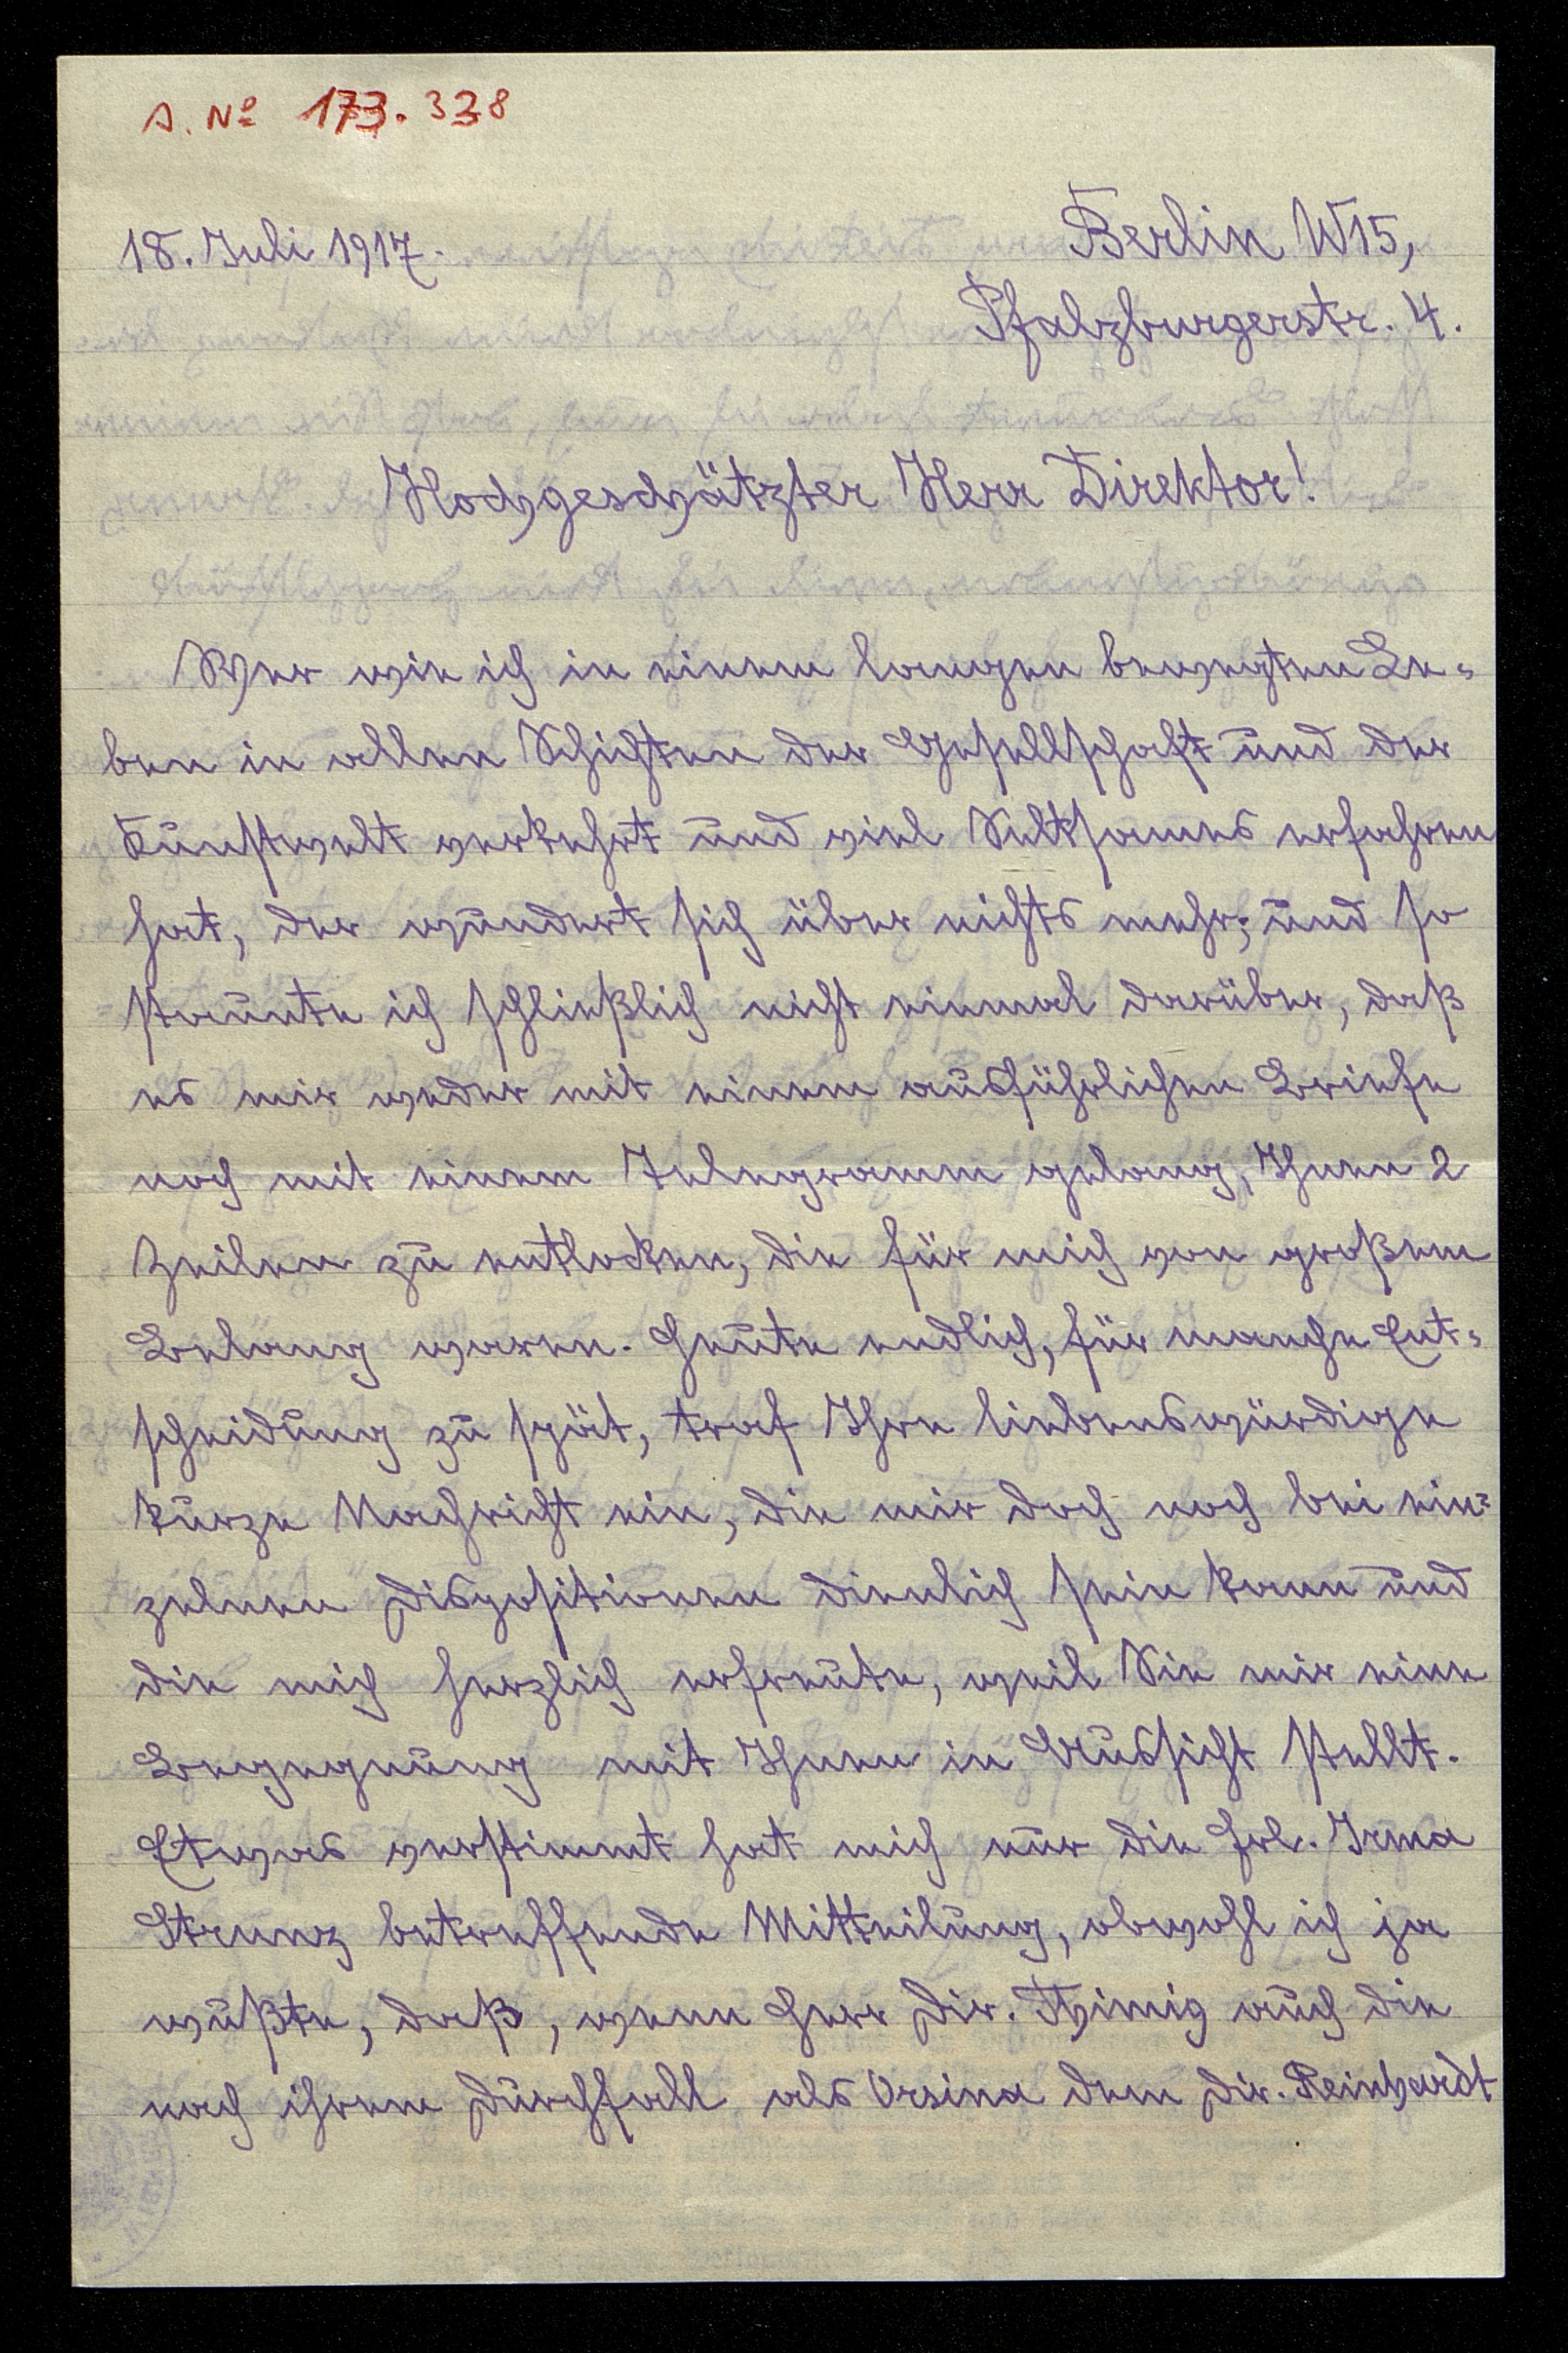 A. Nº 173.338
18. Juli 1917.
Berlin W15,
Pfalzburgerstr. 4.
Hochgeschätzter Herr Direktor!
Wer wie ich in einem langen bewegten Le-
ben in allen Schichten der Gesellschaft und der
Kunstwelt verkehrt und viel Seltsames erfahren
hat, der wundert sich über nichts mehr; und so
staunte ich schließlich nicht einmal darüber, daß
es mir weder mit einem ausführlichen Briefe
noch mit einem Telegramm gelang, Ihnen 2
Zeilen zu entlocken, die für mich von großem
Belang waren. Heute endlich, für manche Ent-
scheidung zu spät, traf Ihre liebenswürdige
kurze Nachricht ein, die mir doch noch bei ein-
zelnen Dispositionen dienlich sein kann und
die mich herzlich erfreute, weil Sie mir eine
Begegnung mit Ihnen in Aussicht stellt.
Etwas verstimmt hat mich nur die Frl. Irma
Strunz betreffende Mitteilung, obwohl ich ja
wußte, daß, wenn Herr Dir. Thimig auch die
nach ihrem Durchfall als Orsina dem Dir. Reinhardt